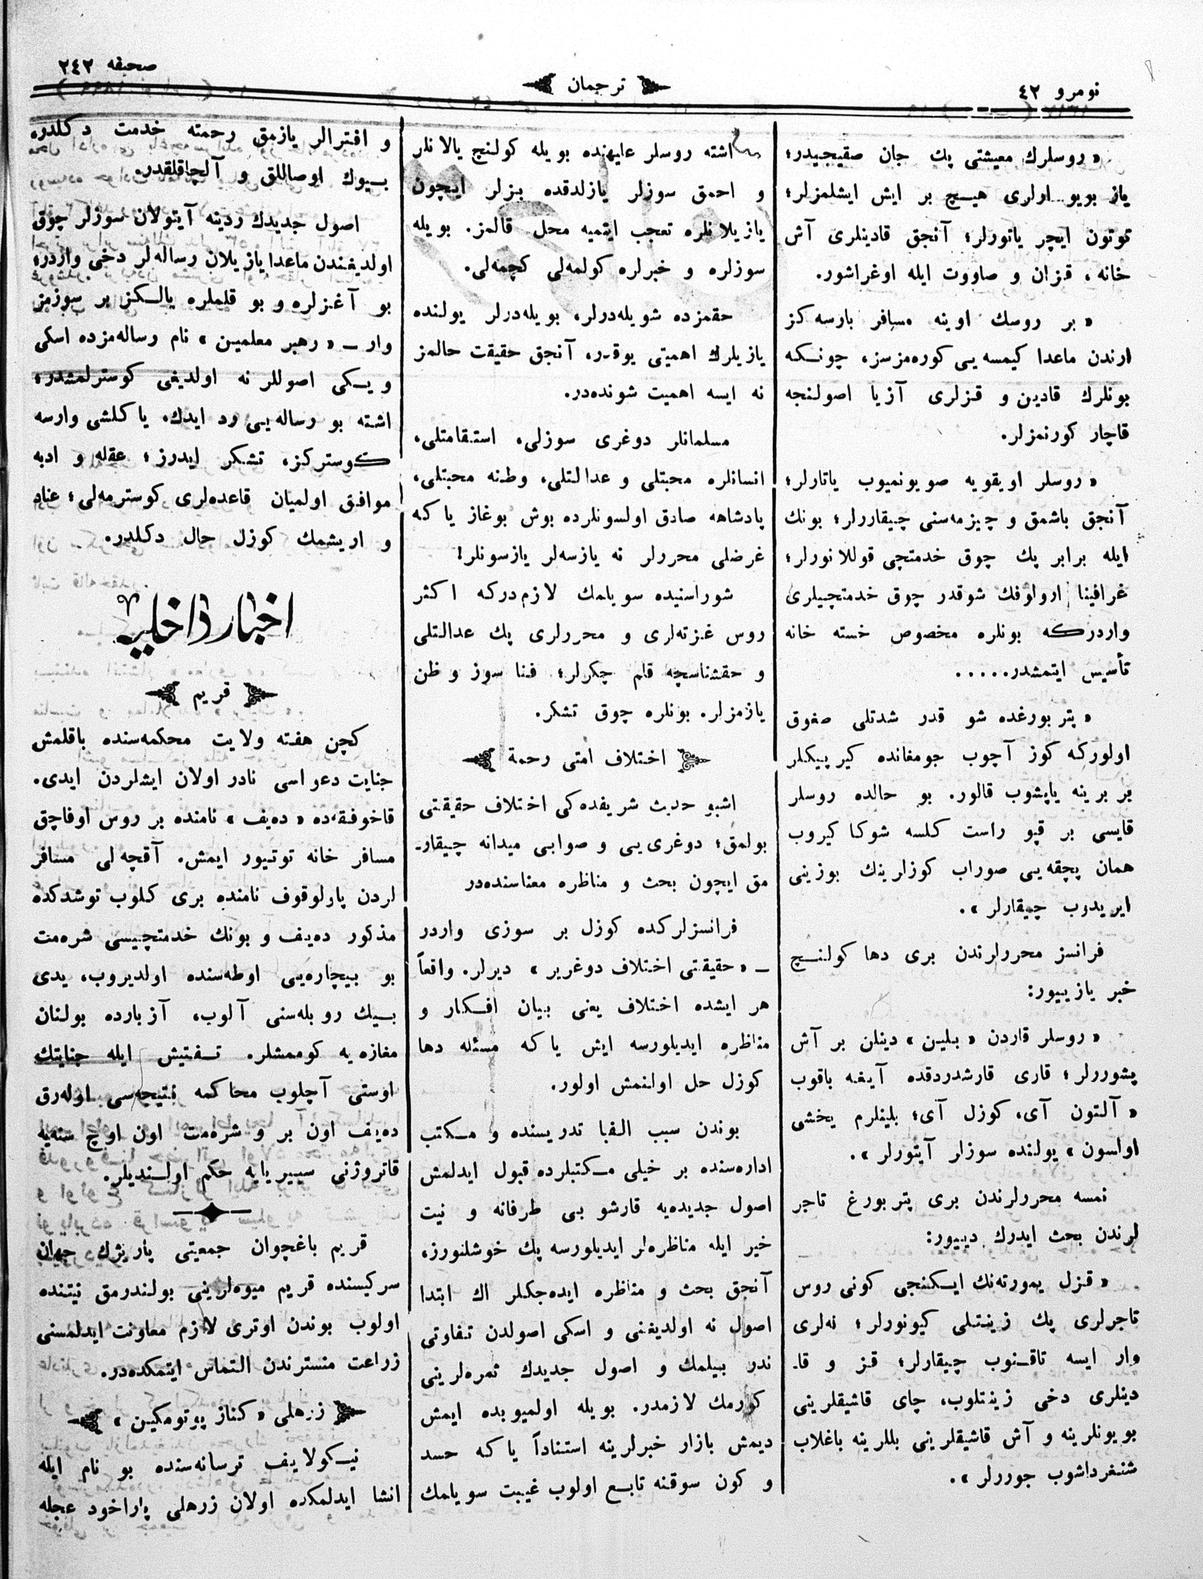 نومرو ٤٢
ترجمان
صحيفه ٢٤٢
« روسلرك معيشتى پك جان صقيجيدر؛
ياز بويو اولرى هيـچ بر ايش ايشلمزلر؛
توتون ايچر ياتورلر؛ آنجق قادينلرى آش
خانه ، قزان و صاووت ايله اوغراشور.
« بر روسك اوينه مسافر بارسه كز
ارندن ماعدا كيمسه يى كوره مزسز، چونـكه
بونلرك قادين و قـزلرى آزيا اصولنجه
قاچار كورنمزلر.
« روسلر اويقويه صويونميوب ياتارلر؛
آنجق باشمق و چيزمه سنى چيقاررلر؛ بونك
ايله برابر پك چوق خدمتجى قوللانورلر؛
غرافينا ارولوفك شوقدر چوق خدمتچيلرى
واردركه بونلره مخصوص خسته خانه
تأسيس ايتمشدر.....
« پتربورغده شو قدر شدتلى صغوق
اولوركه كوز آچوب جومغانده كيرپيكلر
بربرينه ياپشوب قالور. بو حالده روسلر
قايسى بر قپو راست كلسه شوكا كيروب
همان پچقه يى صوراب كوزلرينك بوزينى
ايريدوب چيقارلر ».
فرانسز محررلرندن برى دها كولنـچ
خبر يازييور:
« روسلر قاردن « بلين » دينلن بر آش
پشوررلر؛ قارى قارشدردقده آيغه باقوب
« آلتون آى، كوزل آى؛ بلينلرم يخشى
اولسون » يولنده سوزلر آيتورلر ».
نمسه محررلرندن برى پتربورغ تاجر
لرندن بحث ايدرك دييور:
« قزل يمورته نك ايـكنجى كونى روس
تاجرلرى پك زينتلى كيونورلر؛ نه لرى
وار ايسه تاقـنوب چيقارلر؛ قـز و قا-
دينلرى دخى زينتلوب، چاى قاشيقلرينى
بويونلرينه و آش قاشيقلرينى بللرينه باغلاب
شنغرداشوب جوررلر ».
اشته روسلر عليهنده بويله كولنج يالانلر
و احمق سوزلر يازلدقده بزلر ايچون
يازيلانلره تعجب ايتميه محل قالمز. بويله
سوزلره و خبرلره كولمه لى كچمه لى.
حقمزده شويله درلر، بويله درلر يولنده
يازيلرك اهميتى يوقدر، آنجق حقيقت حالمز
نه ايسه اهميت شونده در.
مسلمانلر دوغرى سوزلى، استقامتلى،
انسانلره محبتلى و عدالتلى، وطنه محبتلى،
پادشاهه صادق اولسونلرده بوش بوغاز ياكه
غرضلى محررلر نه يازسه لر يازسونلر!
شوراسنيده سويلمك لازم دركه اكثر
روس غزته لرى و محررلرى پك عدالتلى
و حقشناسچه قلم چكرلر؛ فنا سوز و ظن
يازمزلر. بونلره چوق تشكر.
اختلاف امتى رحمة
اشبو حديث شريفده كى اختلاف حقيقتى
بولمق؛ دوغرى يى و صوابى ميدانه چيقار-
مق ايچون بحث و مناظره معناسنده در
فرانسزلركده كوزل بر سوزى واردر
ـ « حقيقتى اختلاف دوغرير » ديرلر. واقعاً
هر ايشده اختلاف يعنى بيان افـكار و
مناظره ايديلورسه ايش ياكه مسئله دها
كوزل حل اولنمش اولور.
بوندن سبب الفبا تدريسنده و مـكتب
اداره سنده بر خيلى مـكتبلرده قبول ايدلمش
اصول جديده يه قارشو بى طرفانه و نيت
خير ايله مناظره لر ايديلورسه پك خوشلنورز،
آنجق بحث و مناظره ايده جكلر اك ابتدا
اصول نه اولديغنى و اسكى اصولدن تفاوتى
ندر بيلمك و اصول جديدك ثمره لرينى
كورمك لازمدر. بويله اولميوبده ايمش
ديمش بازار خبرلرينه استناداً ياكه حسد
و كون سوقنه تابـع اولوب غيبت سويلمك
و افترالر يازمق رحمته خدمت دكلدر،
بـيوك اوصاللق و آلچاقلقدر.
اصول جديدك ردينه آيتولان سوزلر چوق
اولديغندن ماعدا يازيلان رساله لر دخى واردر؛
بو آغزلره و بو قلملره يالـكز بر سوزمز
وار ـ « رهبر معلمين » نام رساله مزده اسكى
و يـكى اصوللر نه اولديغى كوسترلمشدر؛
اشته بو رساله يى رد ايدك. ياكلشى وارسه
كوستركز، تشكر ايدرز؛ عقله و ادبه
موافق اولميان قاعده لرى كوسترمه لى؛ عناد
و اريشمك كوزل حال دكلدر.
اخبار داخليه
قريم
كچن هفته ولايت محكمه سنده باقلمش
جنايت دعواسى نادر اولان ايشلردن ايدى.
قاخوفقه ده « ده يف » نامنده بر روس اوفاچق
مسافر خانه توتيور ايمش. آقچه لى مسافر
لردن پارلوقوف نامنده برى كلوب توشدكده
مذكور ده يف و بونك خدمتچيسى شره مت
بو بيچاره يى اوطه سنده اولديروب، يدى
بـيك روبله سنى آلوب، آزبارده بولنان
مغازه يه كوممشلر. تـفتيش ايله جنايتك
اوستى آچلوب محاكمه نتيجه سى اوله رق
ده يف اون بر و شره مت اون اوچ سنه يه
قاتروژنى سيبيريايه حكم اولـنديلر.
قريم باغچوان جمعيتى پاريژك جهان
سركيسنده قريم ميوه لرينى بولندرمق نيتنده
اولوب بوندن اوترى لازم معاونت ايدلمسنى
زراعت منسترندن التماس ايتمكده در.
زرهلى « كناز پوتومكين »
نيـكولايف ترسانه سنده بو نام ايله
انشا ايدلمكده اولان زرهلى پاراخود عجله